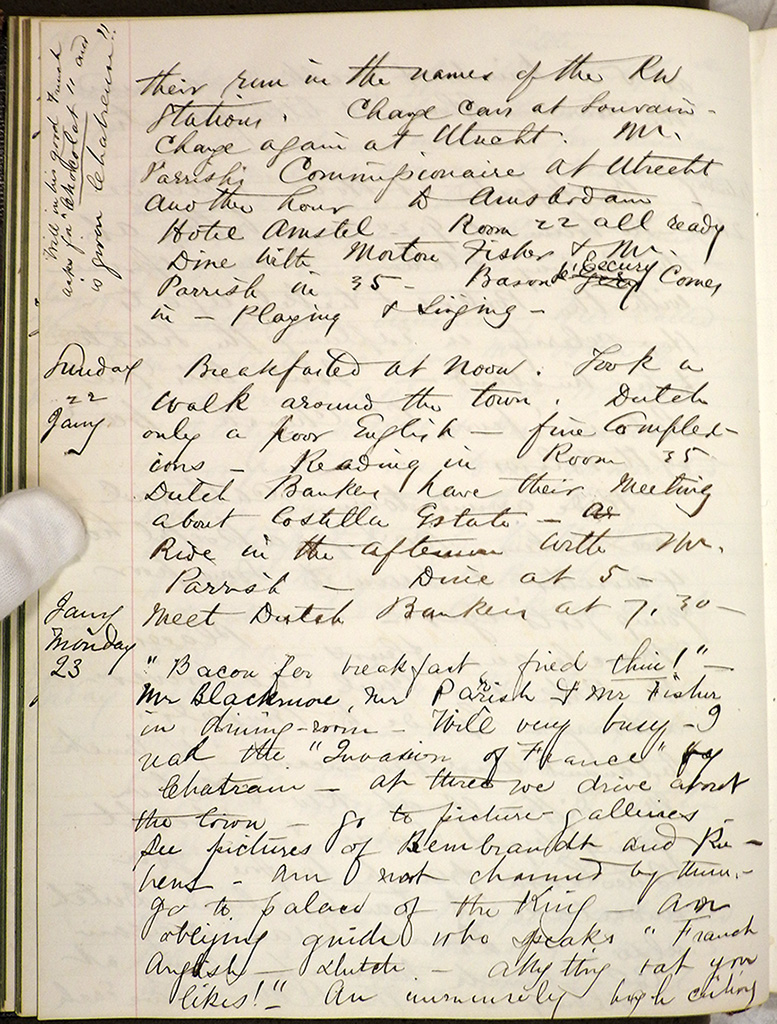 Will in his good French
asks for "Chokolat" and
is given Chatreuse!!
their run in the names of the RW
Stations. Change cars at Louvain -
Change again at Utrecht. Mr.
Parrish's Commissionaire at Utrecht
another hour to Amsterdam
Hotel Amstel Room 22 all ready
Dine with Morton Fisher & Mr.
Parrish in 35 - Baron Comes
in - Playing & Singing -
Sunday
22
Jany
Breakfasted at noon. Took a
walk around the town. Dutch
only a poor English - fine Complex-
ions - Reading in Room 35
Dutch Bankers have their Meeting
about Costilla Estate -
Ride in the afternoon with Mr.
Parrish - Dine at 5 -
Meet Dutch Bankers at 7.30 -
Jany
Monday
23
"Bacon for breakfast fried thin!" -
Mr Blackmore, Mr Parrish & Mr Fisher
in dining-room - Will very busy - I
read the "Invasion of France" by
Chatrain - at three we drive about
the town - go to picture galleries -
See pictures of Rembrandt and Ru-
bens - am not charmed by them -
go to palace of the King - an
obliging guide who speaks "Franch
Anglish - Dutch - anything vat you
likes!" An immensely high ceiling